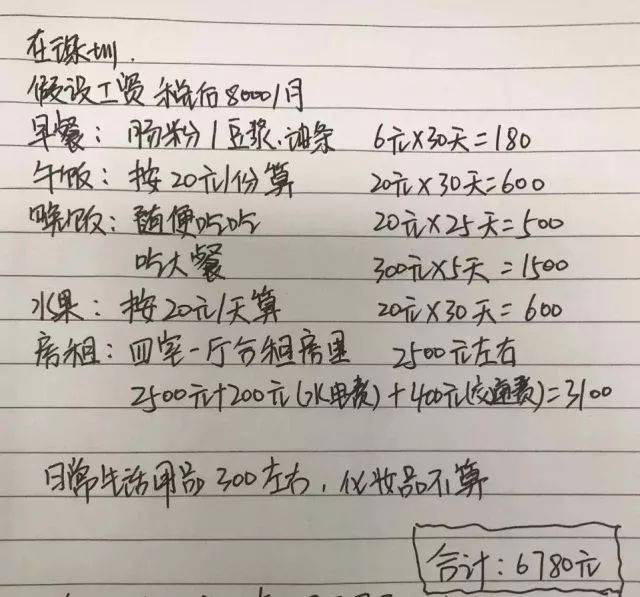 在深圳.
假设工资 税后8000/月
早餐: 肠粉/豆浆.油条 6元×30天=180
午饭: 按20元/份算 20元×30天=600
晚饭: 随便吃吃 20元×25天=500
吃大餐 300元×5天=1500
水果: 按20元/天算 20元×30天=600
房租: 四室一厅合租房里 2500元左右
2500元+200元(水电费)+400元(交通费)=3100
日常生活用品300左右, 化妆品不算
合计: 6780元